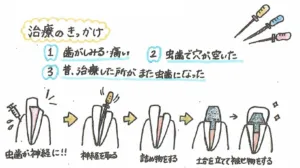 治療のきっかけ
1 歯がしみる・痛い 2 虫歯で穴が空いた
3 昔、治療した所がまた虫歯になった
虫歯が神経に!! 神経を取る 詰め物をする 土台を立て被せ物をする